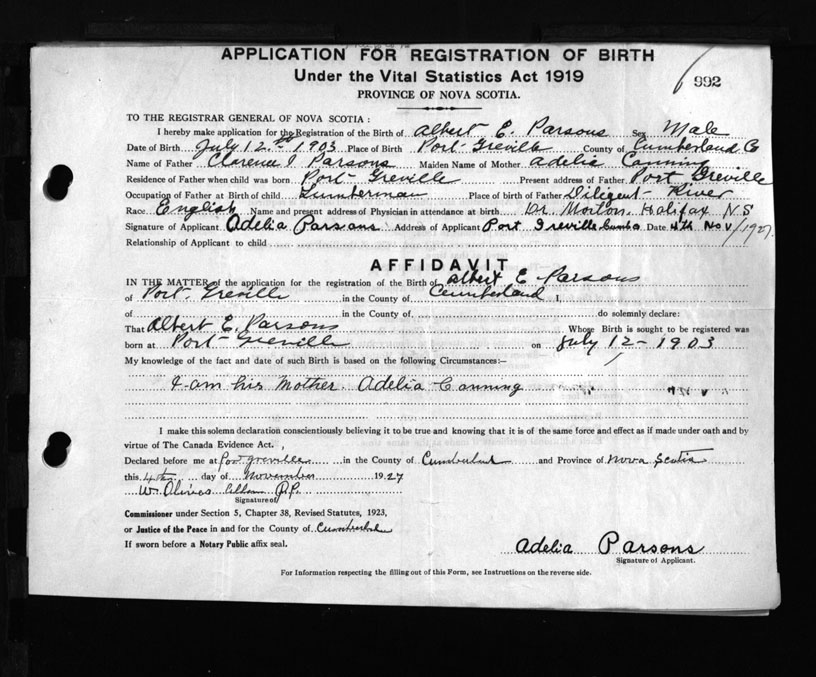 APPLICATION FOR REGISTRATION OF BIRTH
Under the Vital Statistics Act 1919
992
PROVINCE OF NOVA SCOTIA.
TO THE REGISTRAR GENERAL OF NOVA SCOTIA:
I hereby make application for the Registration of the Birth of Albert E. Parsons Sex Male
Date of Birth July 12 1903 Place of Birth Port Greville County of Cumberland Co
Name of Father Clarence Parsons Maiden Name of Mother Adelia Canning
Residence of Father when child was born Port Greville Present address of Father Port Greville
Occupation of Father at Birth of child Lumberman Place of birth of Father Diligent River
Race English Name and present address of Physician in attendance at birth Dr Morton. Halifax NS
Signature of Applicant Adelia Parsons Address of Applicant Port Greville Cumb Date 4th Nov/1927.
Relationship of Applicant to child
AFFIDAVIT
IN THE MATTER of the application for the registration of the Birth of Albert E Parsons
of Port Greville in the County of Cumberland I,
of in the County of do solemnly declare:
That Albert E. Parsons Whose Birth is sought to be registered was
born at Port Greville on July 12-1903
My knowledge of the fact and date of such Birth is based on the following Circumstances:–
I am his Mother. Adelia Canning
I make this solemn declaration conscientiously believing it to be true and knowing that it is of the same force and effect as if made under oath and by
virtue of The Canada Evidence Act.
Declared before me at Port Greville in the County of Cumberland and Province of Nova Scotia
this 4th day of November 1927
Signature of
Commissioner under Section 5, Chapter 38, Revised Statutes, 1923,
or Justice of the Peace in and for the County of Cumberland
If sworn before a Notary Public affix seal.
Adelia Parsons
Signature of Applicant.
For Information respecting the filling out of this Form, see Instructions on the reverse side.